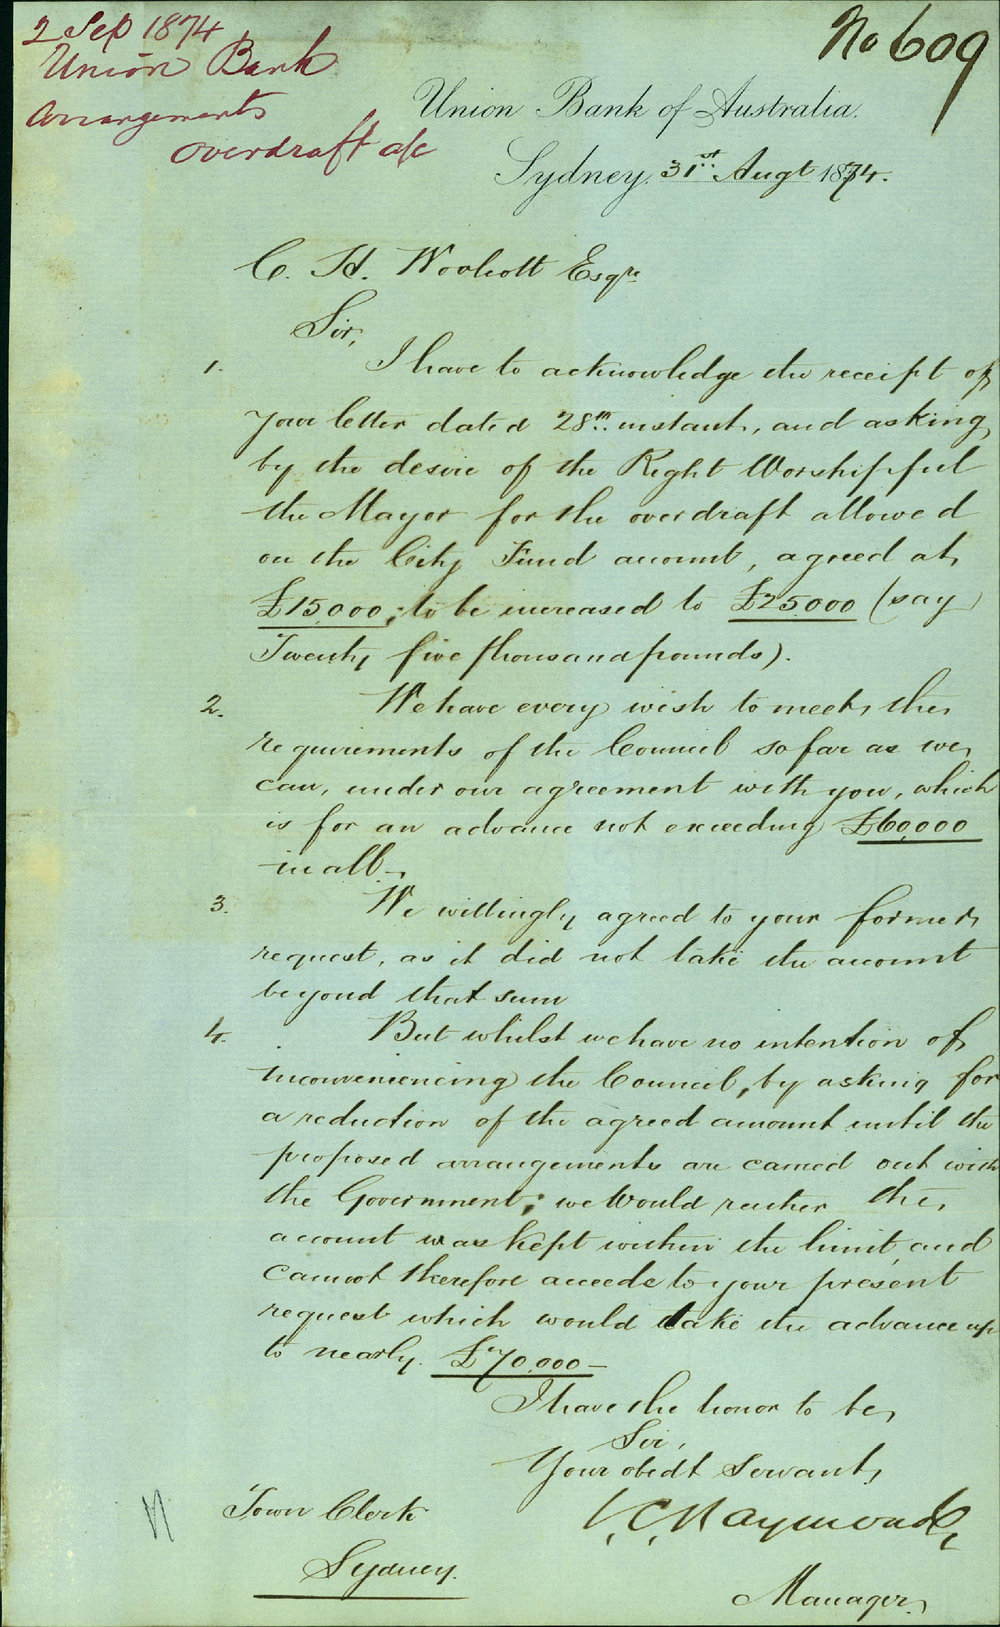 2 Sep 1874
Union Bank
Arrangements
overdraft a/c
No 609
Union Bank of Australia.
Sydney. 31st Augt 1874.
C. H. Woolcott Esqre
Sir,
1. I have to acknowledge the receipt of
your letter dated 28th instant, and asking
by the desire of the Right Worshipful
the Mayor for the overdraft allowed
on the City Fund account, agreed at
£15,000; to be increased to £25000 (say
Twenty five thousand pounds).
2. We have every wish to meet the
requirements of the Council so far as we
can, under our agreement with you, which
is for an advance not exceeding £60,000
in all –
3. We willingly agreed to your former
request, as it did not take the account
beyond that sum
4. But whilst we have no intention of
inconveniencing the Council, by asking for
a reduction of the agreed amount until the
proposed arrangements are carried out with
the Government; we would rather the
account was kept within the limit, and
cannot therefore accede to your present
request which would take the advance up
to nearly. £70,000 –
I have the honor to be,
Sir,
Your obedt Servant,
Raymond
Town Clerk
Sydney.
Manager.